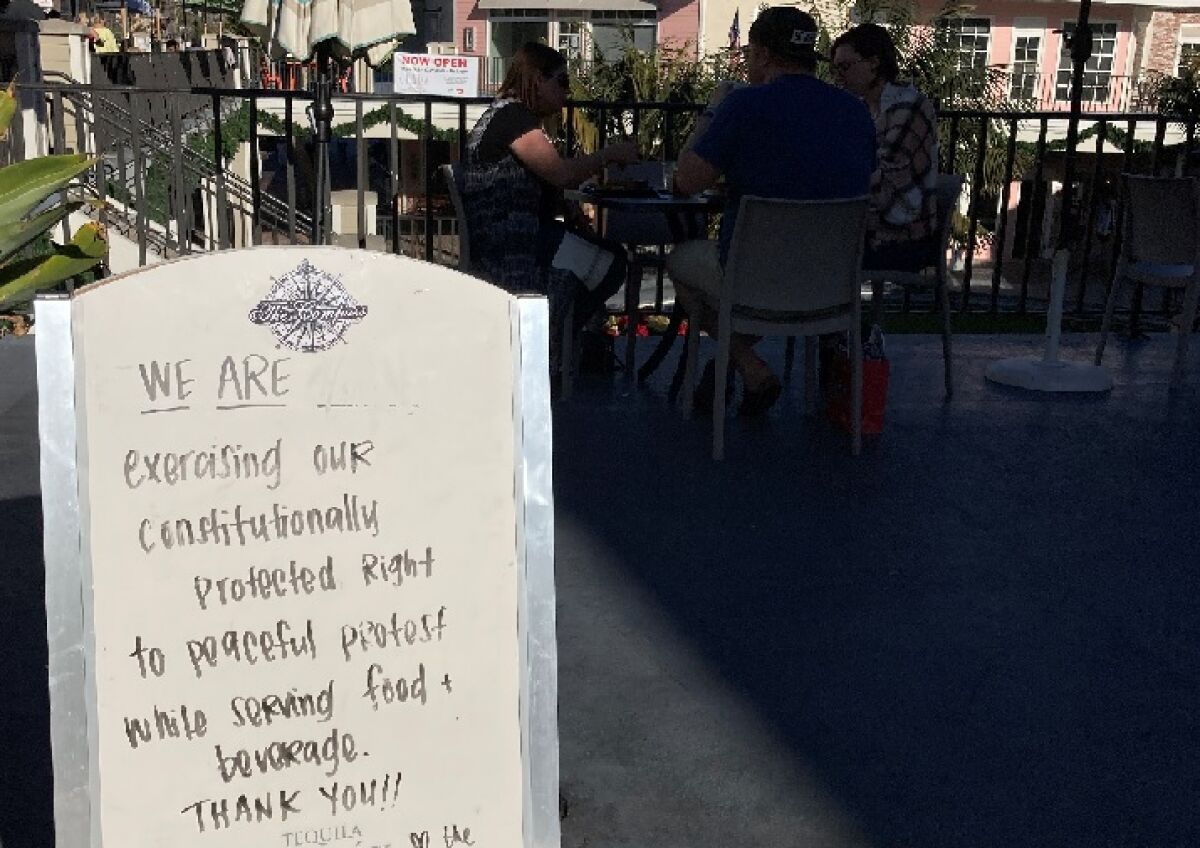 NOW OPEN
The Compass
WE ARE
exercising our
constitutionally
Protected Right
to peaceful protest
while serving food +
beverage.
THANK YOU!!
TEQUILA
the